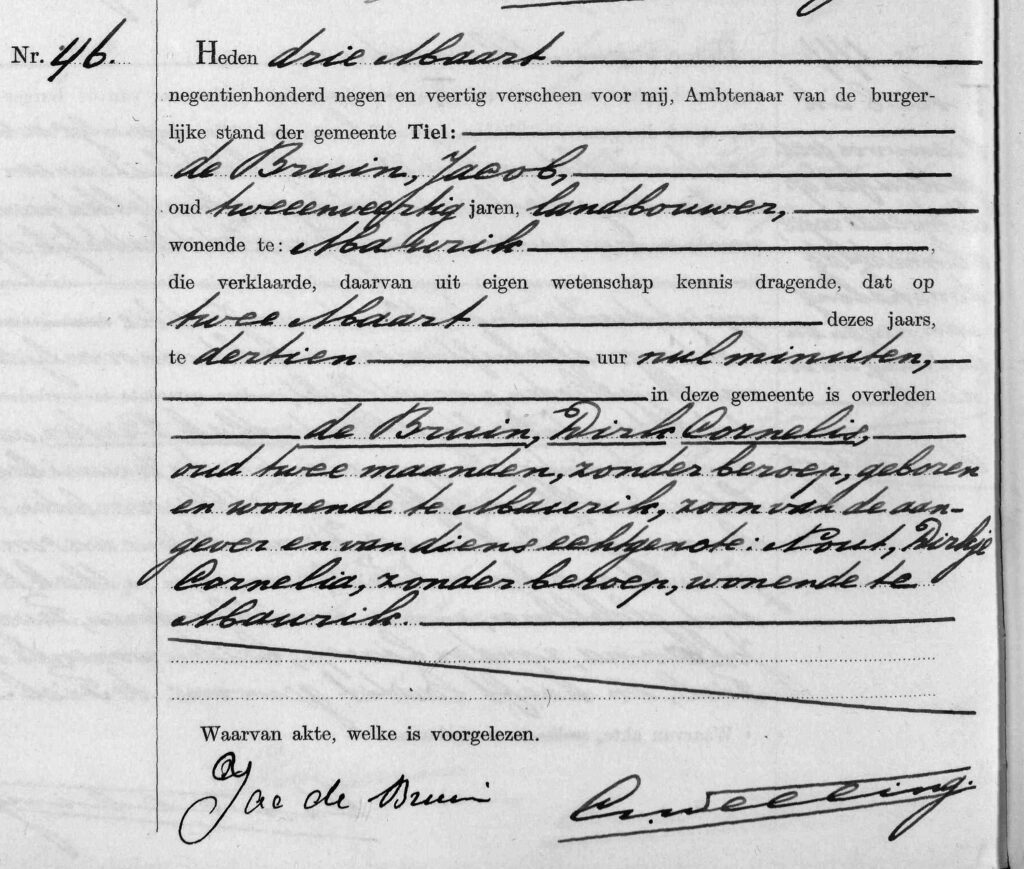 Nr. 46.
Heden drie Maart
negentienhonderd negen en veertig verscheen voor mij, Ambtenaar van de burger-
lijke stand der gemeente Tiel:
de Bruin, Jacob,
oud tweeenveertig jaren, landbouwer,
wonende te: Maurik
die verklaarde, daarvan uit eigen wetenschap kennis dragende, dat op
twee Maart dezes jaars,
te dertien uur nul minuten,
in deze gemeente is overleden
de Bruin, Dirk Cornelis,
oud twee maanden, zonder beroep, geboren
en wonende te Maurik, zoon van de aan-
gever en van diens echtgenote: Nout, Dirkje
Cornelia, zonder beroep, wonende te
Maurik.
Waarvan akte, welke is voorgelezen.
Jac de Bruin